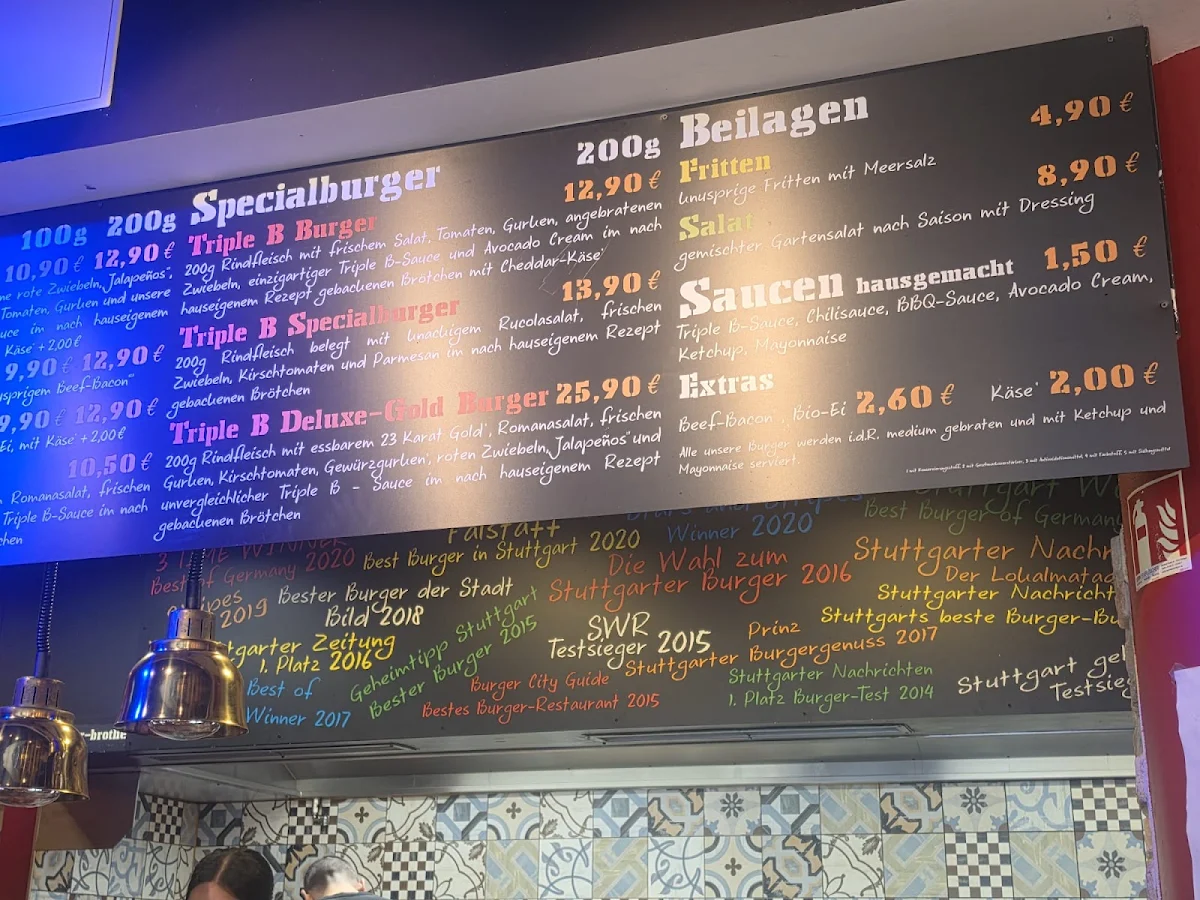 100g 200g
10,90 € 12,90 €
rote Zwiebeln, Jalapeños*,
Tomaten, Gurken und unsere
im nach hauseigenem
Käse* +2,00 €
9,90 € 12,90 €
Beef-Bacon
9,90 € 12,90 €
Ei, mit Käse* +2,00 €
10,50 €
Romanasalat, frischen
Triple B-Sauce im nach
Specialburger 200g
Triple B Burger 12,90 €
200g Rindfleisch mit frischem Salat, Tomaten, Gurken, angebratenen
Zwiebeln, einzigartiger Triple B-Sauce und Avocado Cream im nach
hauseigenem Rezept gebackenen Brötchen mit Cheddar-Käse*
Triple B Specialburger 13,90 €
200g Rindfleisch belegt mit knackigem Rucolasalat, frischen
Zwiebeln, Kirschtomaten und Parmesan im nach hauseigenem Rezept
gebackenen Brötchen
Triple B Deluxe-Gold Burger 25,90 €
200g Rindfleisch mit essbarem 23 Karat Gold*, Romanasalat, frischen
Gurken, Kirschtomaten, Gewürzgurken*, roten Zwiebeln, Jalapeños* und
unvergleichlicher Triple B - Sauce im nach hauseigenem Rezept
gebackenen Brötchen
Beilagen
Fritten 4,90 €
knusprige Fritten mit Meersalz
Salat 8,90 €
gemischter Gartensalat nach Saison mit Dressing
Saucen hausgemacht 1,50 €
Triple B-Sauce, Chilisauce, BBQ-Sauce, Avocado Cream,
Ketchup, Mayonnaise
Extras
Beef-Bacon, Bio-Ei 2,60 € Käse* 2,00 €
Alle unsere Burger werden i.d.R. medium gebraten und mit Ketchup und
Mayonnaise serviert.
3 TIME WINNER
Best of Germany 2020
Falstaff
Best Burger in Stuttgart 2020
Winner 2020
Best Burger of Germany
2019
Bester Burger der Stadt
Bild 2018
Die Wahl zum
Stuttgarter Burger 2016
Stuttgarter Nachr
Der Lokalmatad
Stuttgarter Nachricht
Stuttgarts beste Burger-Bu
tgarter Zeitung
1. Platz 2016
Geheimtipp Stuttgart
Bester Burger 2015
SWR
Testsieger 2015
Prinz
Stuttgarter Burgergenuss 2017
Best of
Winner 2017
Burger City Guide
Bestes Burger-Restaurant 2015
Stuttgarter Nachrichten
1. Platz Burger-Test 2014
Stuttgart gel
Testsieg
r-brothe